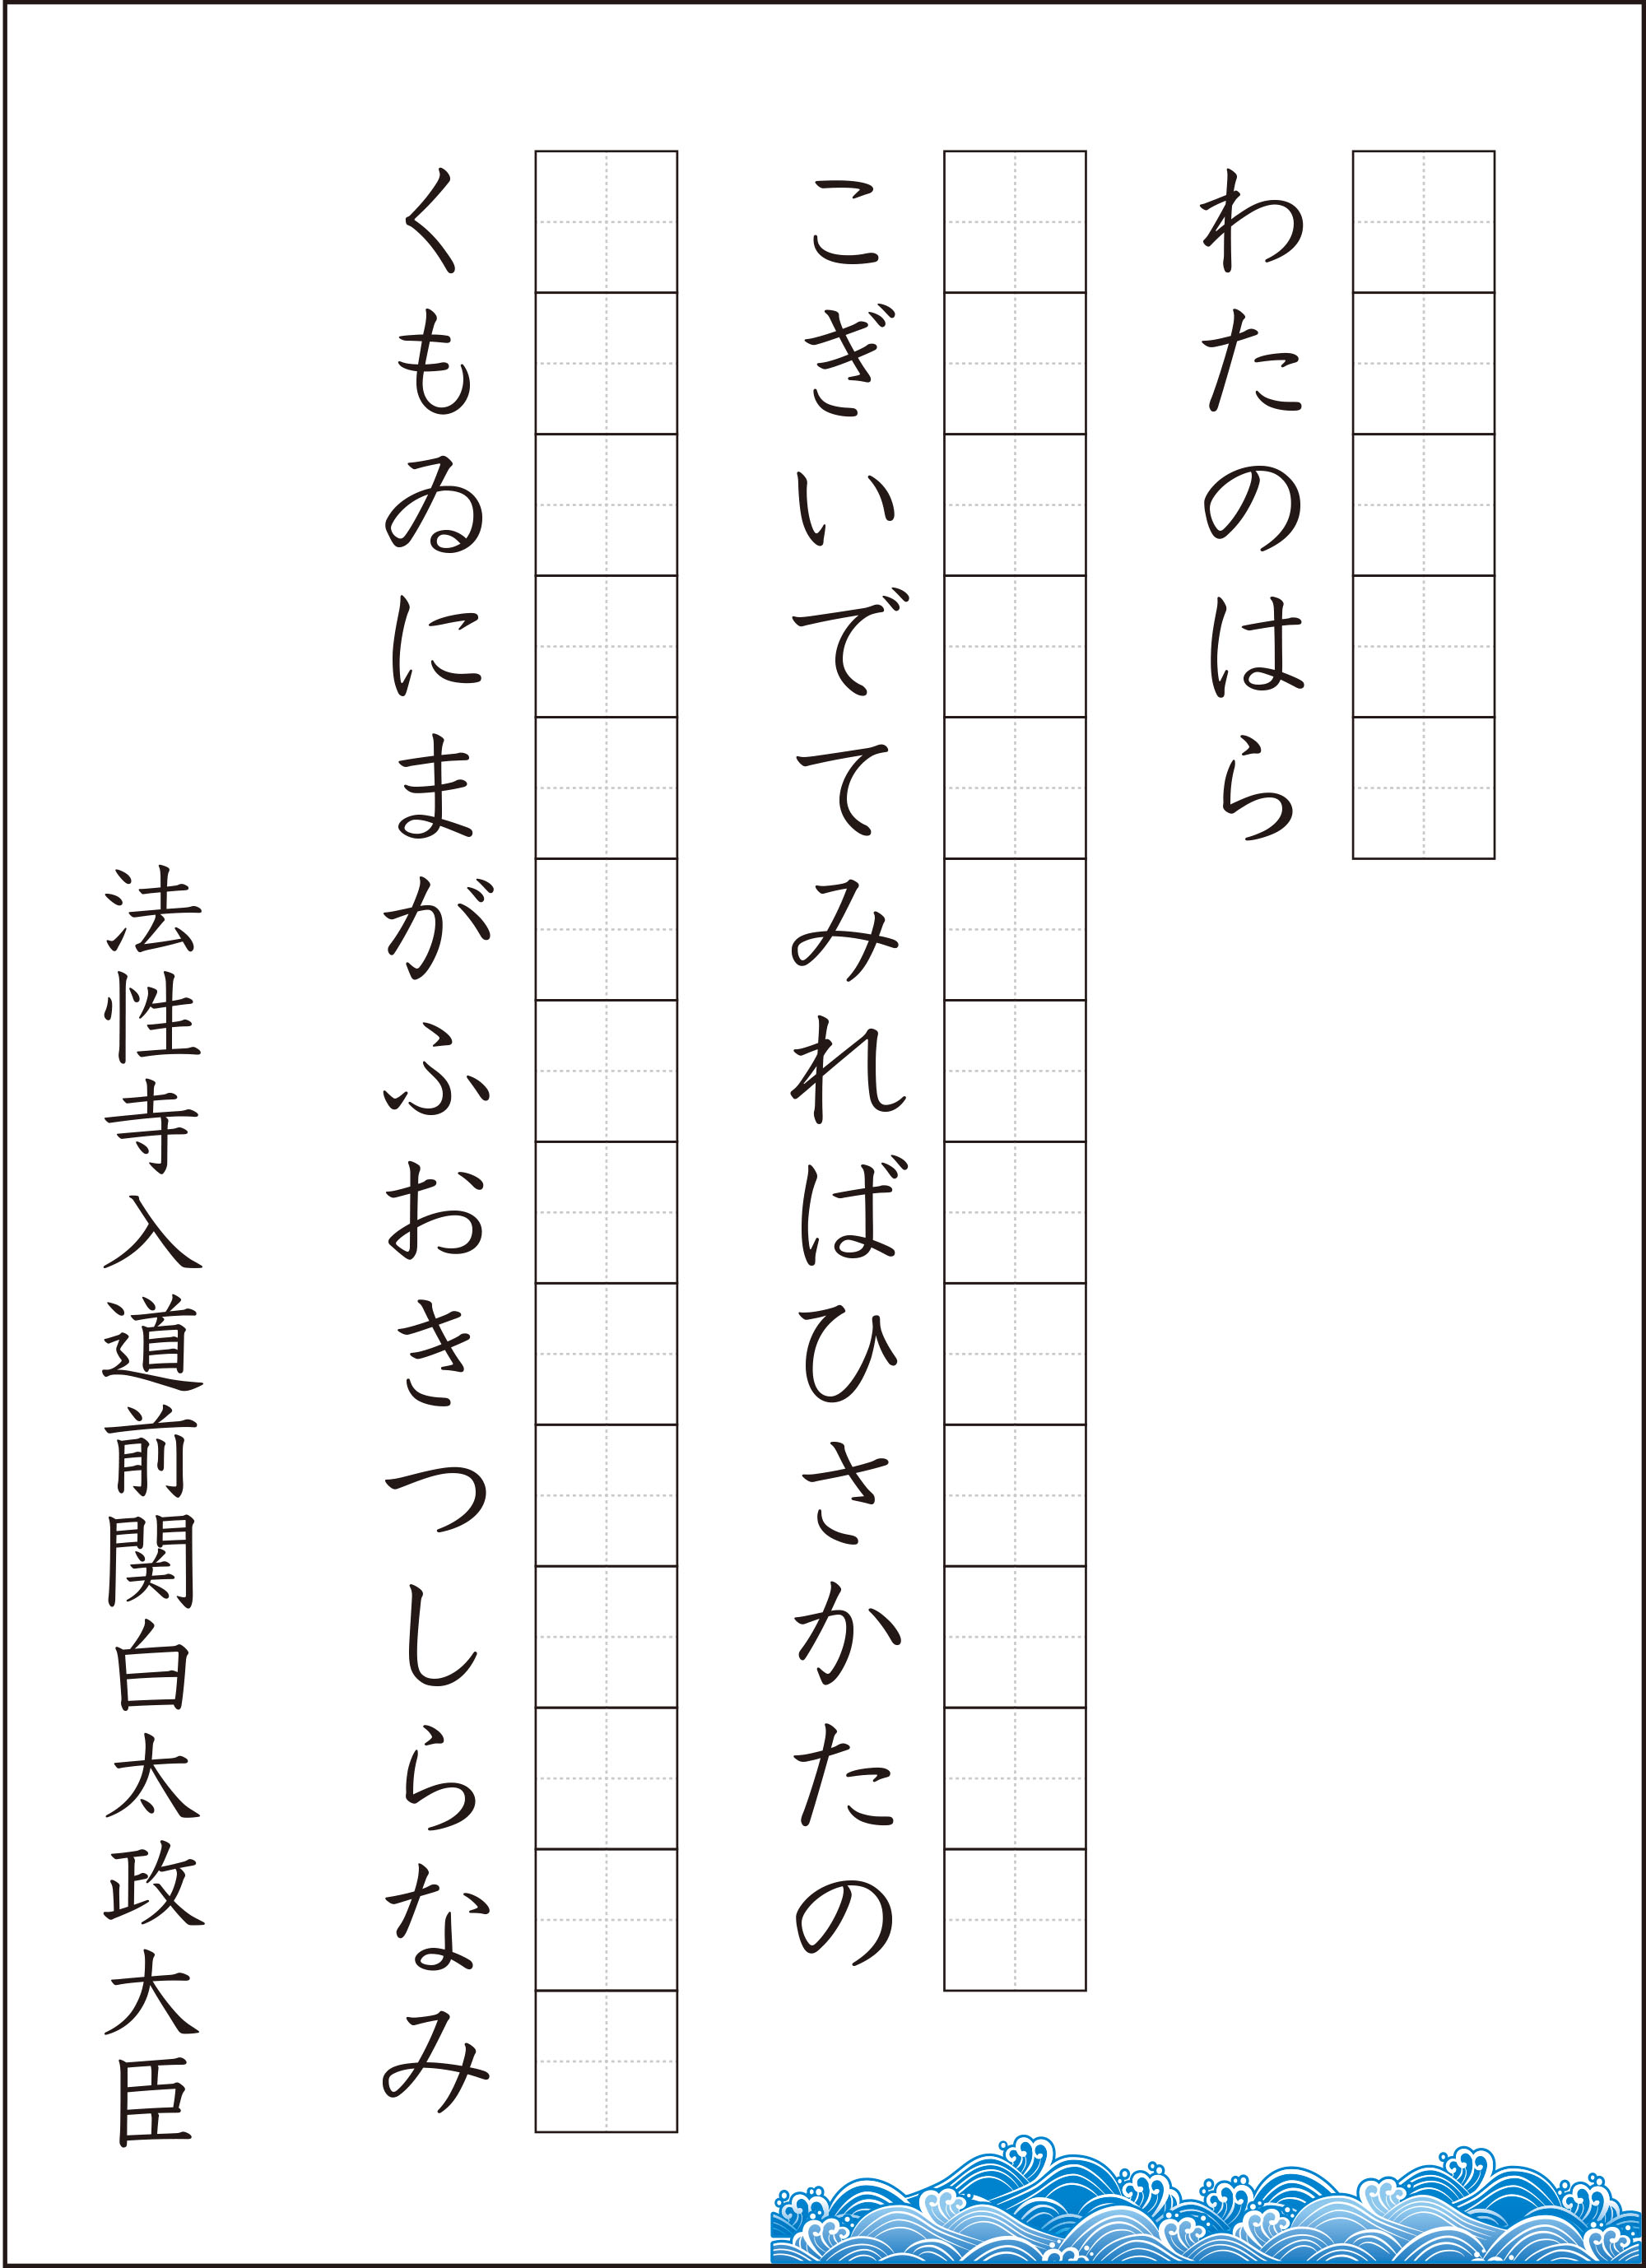 わたのはら
こぎいでてみればひさかたの
くもゐにまがふおきつしらなみ
法性寺入道前関白太政大臣